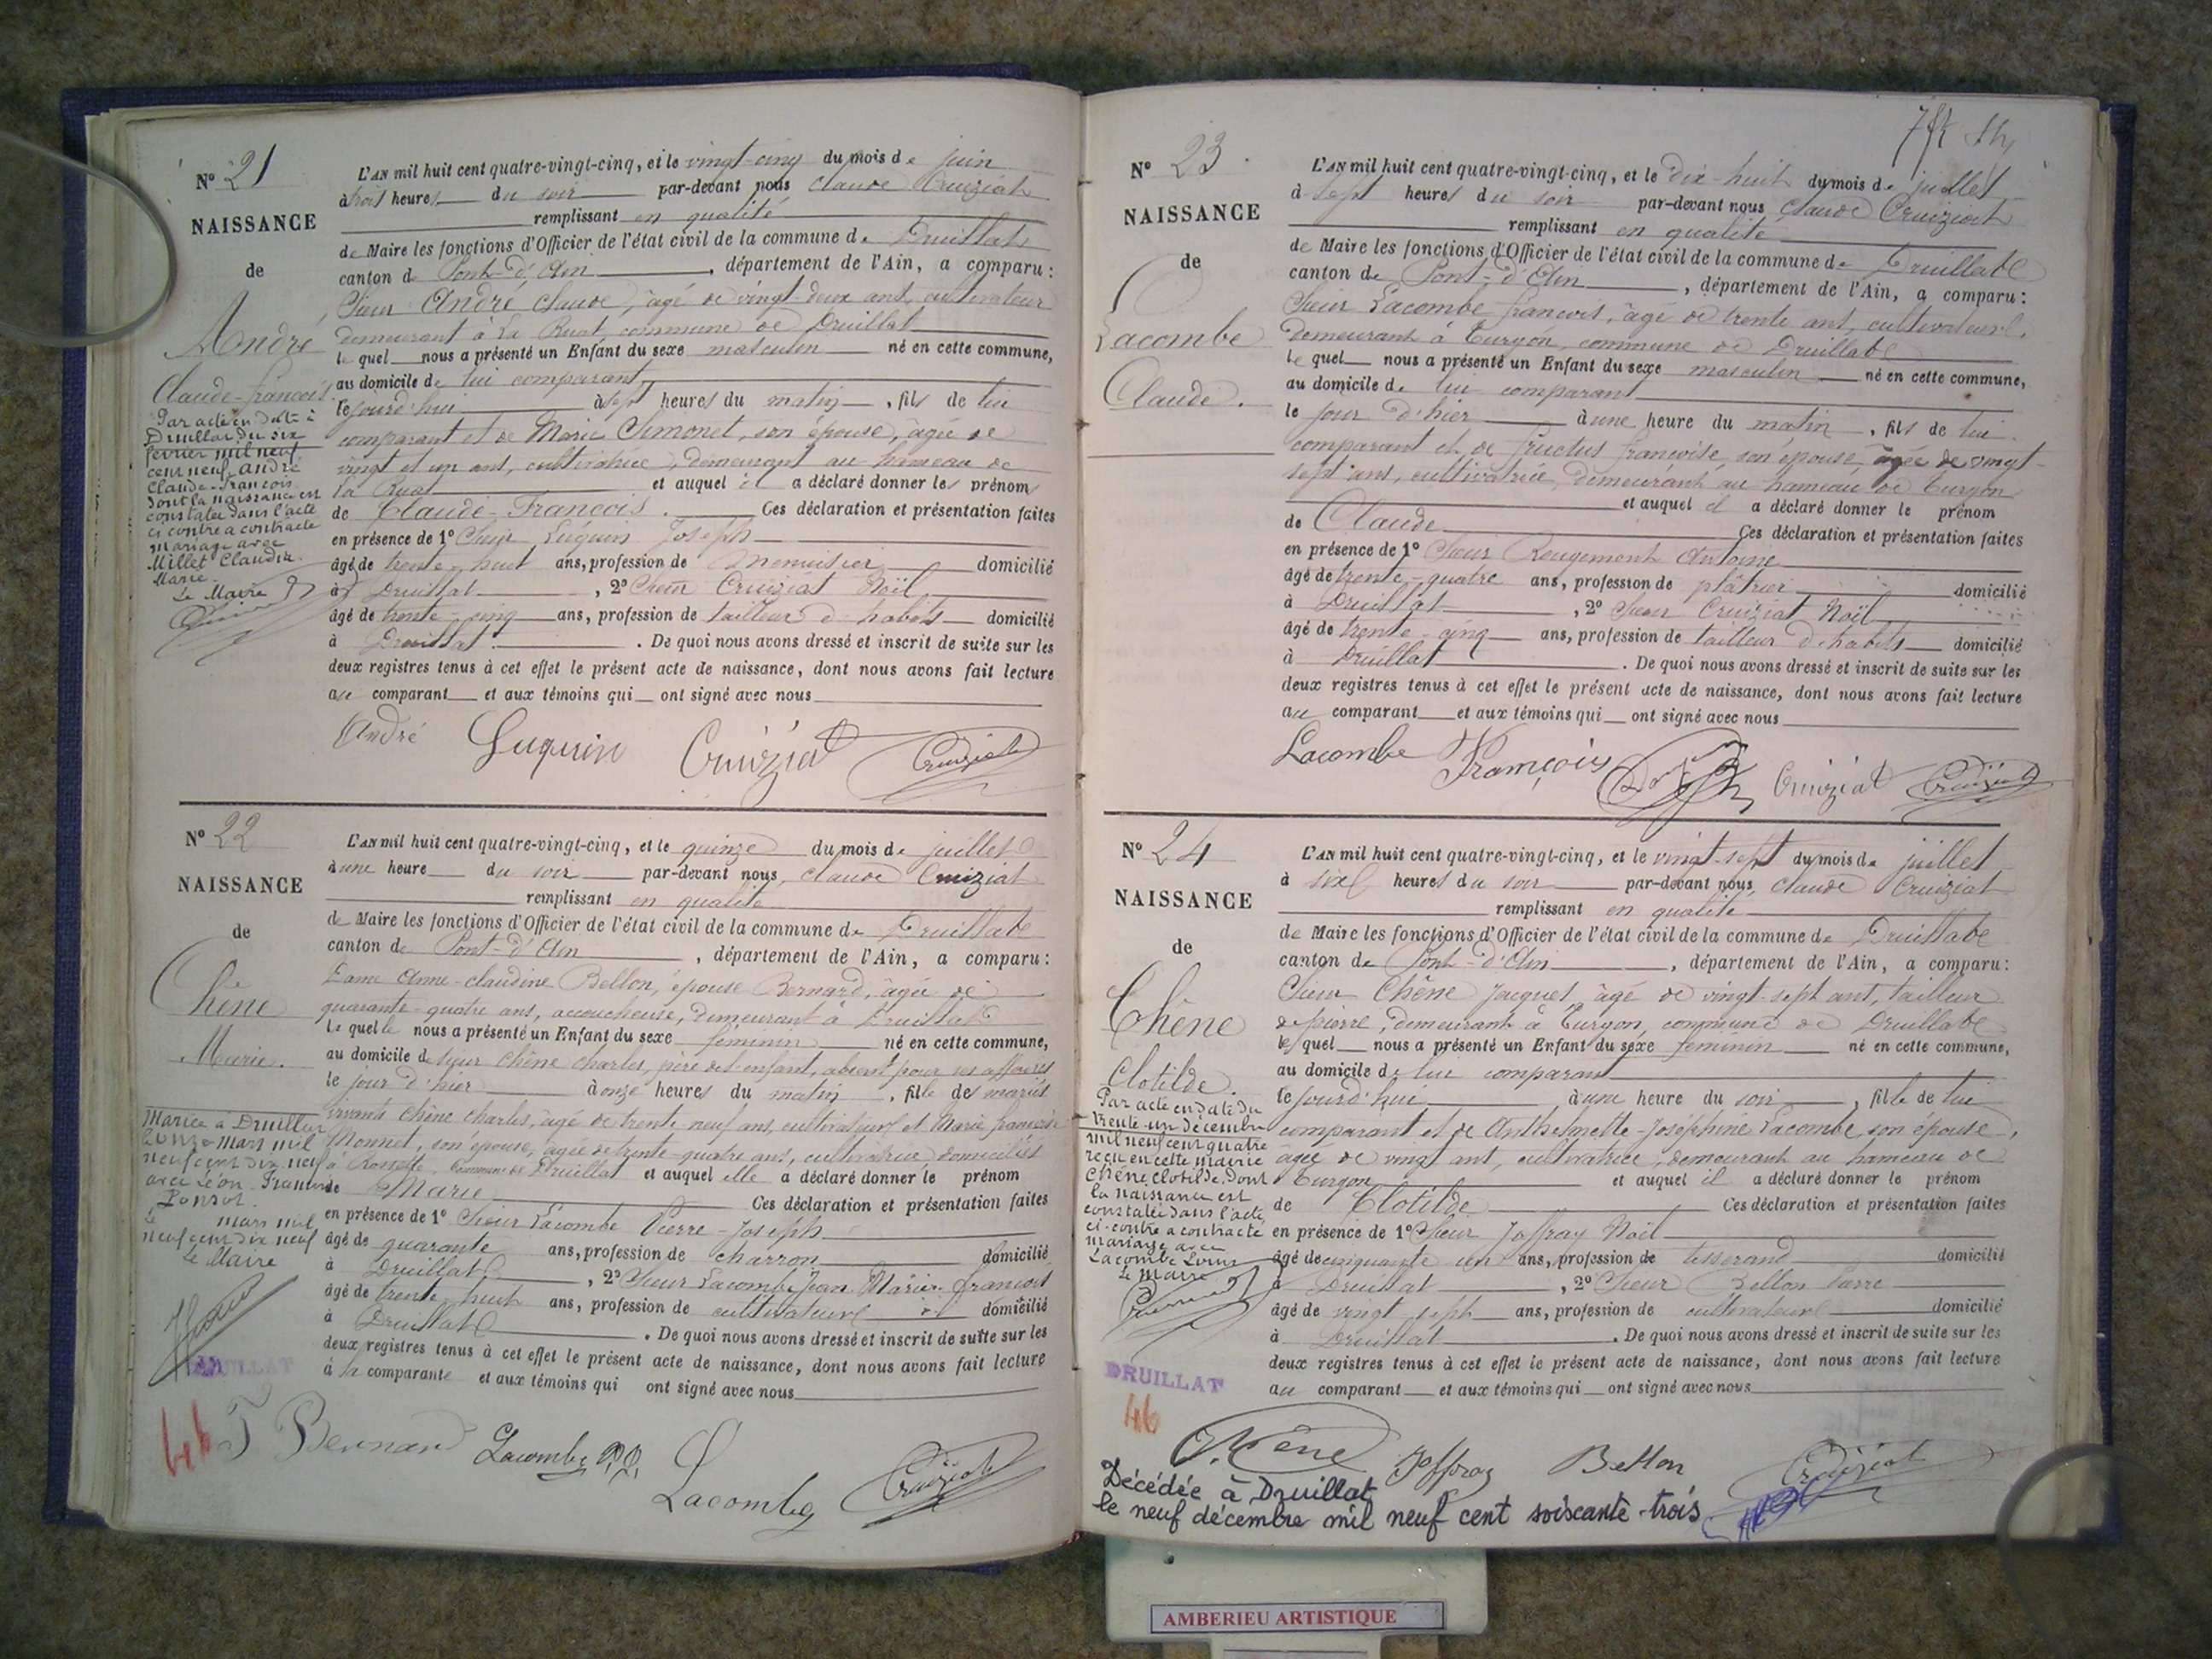 N° 21
NAISSANCE
de
André
Claude-François.
Par acte en date à
Druillat du six
février mil neuf
cent neuf, André
Claude-François
dont la naissance est
constatée dans l'acte
ci contre a contracté
mariage avec
Millet Claudia
Marie.
Le Maire
L'AN mil huit cent quatre-vingt-cinq, et le vingt-cinq du mois de juin
à trois heures du soir par-devant nous Claude Cruiziat
remplissant en qualité
de Maire les fonctions d'Officier de l'état civil de la commune de Druillat
canton de Pont-d'Ain, département de l'Ain, a comparu:
Sieur André Claude, âgé de vingt-deux ans, cultivateur
demeurant à la Ruat, commune de Druillat
lequel nous a présenté un Enfant du sexe masculin né en cette commune,
au domicile de lui comparant,
le jourd'hui à sept heures du matin, fils de lui
comparant et de Marie Simonet, son épouse, âgée de
vingt et un ans, cultivatrice, demeurant au hameau de
la Ruat et auquel il a déclaré donner les prénoms
de Claude-François. Ces déclaration et présentation faites
en présence de 1° Sieur Luguin Joseph
âgé de trente-huit ans, profession de menuisier domicilié
à Druillat, 2° Sieur Cruiziat Noël
âgé de trente-cinq ans, profession de tailleur d'habits domicilié
à Druillat. De quoi nous avons dressé et inscrit de suite sur les
deux registres tenus à cet effet le présent acte de naissance, dont nous avons fait lecture
au comparant et aux témoins qui ont signé avec nous
André Luguin Cruiziat Cruiziat
N° 22
NAISSANCE
de
Chêne
Marie.
Mariée à Druillat
le onze mars mil
neuf cent dix neuf
avec Léon François
Ponsot.
Le mars mil
neuf cent dix neuf
Le Maire
DRUILLAT
46
L'AN mil huit cent quatre-vingt-cinq, et le quinze du mois de juillet
à une heure du soir par-devant nous, Claude Cruiziat
remplissant en qualité
de Maire les fonctions d'Officier de l'état civil de la commune de Druillat
canton de Pont-d'Ain, département de l'Ain, a comparu:
Dame Anne-Claudine Bellon, épouse Bernard, âgée de
quarante-quatre ans, accoucheuse, demeurant à Druillat
Laquelle nous a présenté un Enfant du sexe féminin né en cette commune,
au domicile de sieur Chêne Charles, père de l'enfant, absent pour ses affaires
le jour d'hier à onze heures du matin, fille des mariés
vivants Chêne Charles, âgé de trente neuf ans, cultivateur et Marie françoise
Monnet, son épouse, âgée de trente-quatre ans, cultivatrice domiciliés
à Rossette, commune de Druillat et auquel elle a déclaré donner le prénom
de Marie Ces déclaration et présentation faites
en présence de 1° Sieur Lacombe Pierre-Joseph
âgé de quarante ans, profession de charron domicilié
à Druillat, 2° Sieur Lacombe Jean Marie François
âgé de trente-huit ans, profession de cultivateur domicilié
à Druillat. De quoi nous avons dressé et inscrit de suite sur les
deux registres tenus à cet effet le présent acte de naissance, dont nous avons fait lecture
à la comparante et aux témoins qui ont signé avec nous
Bernard Lacombe Lacombe Cruiziat
N° 23
NAISSANCE
de
Lacombe
Claude.
L'AN mil huit cent quatre-vingt-cinq, et le dix-huit du mois de juillet
à sept heures du soir par-devant nous Claude Cruiziat
remplissant en qualité
de Maire les fonctions d'Officier de l'état civil de la commune de Druillat
canton de Pont-d'Ain, département de l'Ain, a comparu:
Sieur Lacombe François, âgé de trente ans, cultivateur,
demeurant à Turgon, commune de Druillat
lequel nous a présenté un Enfant du sexe masculin né en cette commune,
au domicile de lui comparant
le jour d'hier à une heure du matin, fils de lui
comparant et de Fructus Françoise, son épouse, âgée de vingt-
sept ans, cultivatrice, demeurant au hameau de Turgon
et auquel il a déclaré donner le prénom
de Claude Ces déclaration et présentation faites
en présence de 1° Sieur Rougemont Antoine
âgé de trente-quatre ans, profession de plâtrier domicilié
à Druillat, 2° Sieur Cruiziat Noël
âgé de trente-cinq ans, profession de tailleur d'habits domicilié
à Druillat. De quoi nous avons dressé et inscrit de suite sur les
deux registres tenus à cet effet le présent acte de naissance, dont nous avons fait lecture
au comparant et aux témoins qui ont signé avec nous
Lacombe François Cruiziat Cruiziat
N° 24
NAISSANCE
de
Chêne
Clotilde.
Par acte en date du
trente-un décembre
mil neuf cent quatre
reçu en cette mairie
Chêne Clotilde, dont
la naissance est
constatée dans l'acte
ci-contre a contracté
mariage avec
Lacombe Louis
Le Maire
DRUILLAT
46
L'AN mil huit cent quatre-vingt-cinq, et le vingt-sept du mois de juillet
à six heures du soir par-devant nous, Claude Cruiziat
remplissant en qualité
de Maire les fonctions d'Officier de l'état civil de la commune de Druillat
canton de Pont-d'Ain, département de l'Ain, a comparu:
Sieur Chêne Jacques, âgé de vingt-sept ans, tailleur
de pierre, demeurant à Turgon, commune de Druillat
lequel nous a présenté un Enfant du sexe féminin né en cette commune,
au domicile de lui comparant
le jourd'hui à une heure du soir, fille de lui
comparant et de Anthelmette-Joséphine Lacombe, son épouse,
âgée de vingt ans, cultivatrice, demeurant au hameau de
Turgon et auquel il a déclaré donner le prénom
de Clotilde Ces déclaration et présentation faites
en présence de 1° Sieur Joffray Noël
âgé de cinquante un ans, profession de tisserand domicilié
à Druillat, 2° Sieur Bellon Pierre
âgé de vingt sept ans, profession de cultivateur domicilié
à Druillat. De quoi nous avons dressé et inscrit de suite sur les
deux registres tenus à cet effet le présent acte de naissance, dont nous avons fait lecture
au comparant et aux témoins qui ont signé avec nous
Chêne Joffray Bellon Cruiziat
Décédée à Druillat
le neuf décembre mil neuf cent soixante-trois
AMBERIEU ARTISTIQUE